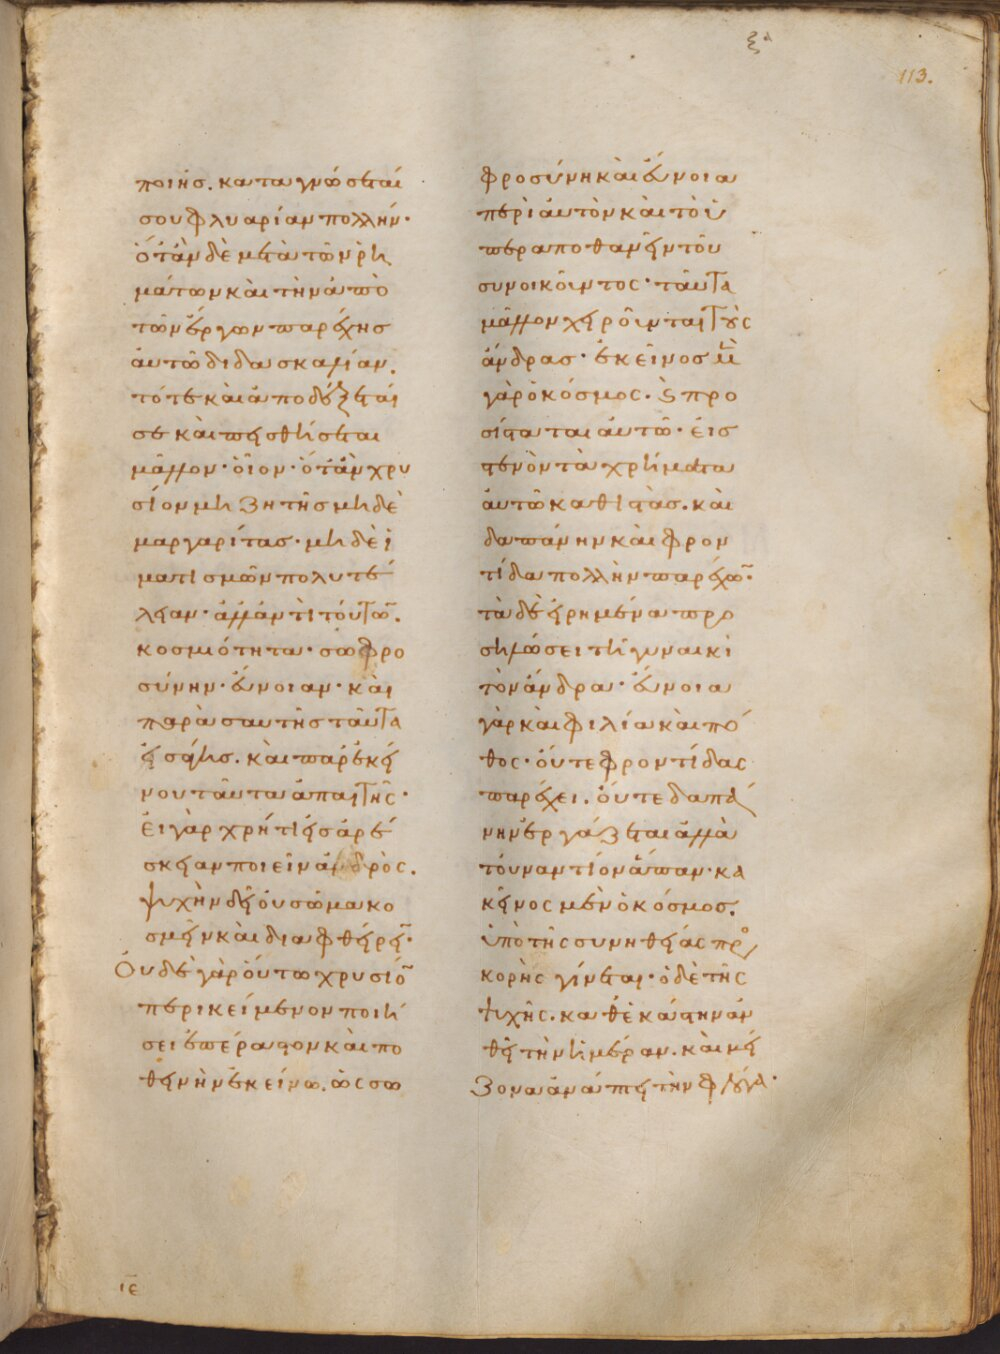 ξα
113.
ποιῆσ. καταγνώσεταί
σου φλυαρίαν πολλήν·
ὅτὰν δὲ μετὰ τῶν ῥη
μάτων καὶ τὴν ἀπὸ
τῶν ἔργων παρέχησ
ἀυτῶ διδασκαλίαν.
τότε καὶ ἀποδέξεταί
σε καὶ πεισθήσεται
μᾶλλον· ὁῖον· ὁτἂν χρυ
σίον μὴ ζητῆσ μὴ δὲ
μαργαρίτασ· μὴ δὲ ἱ
ματισμῶν πολυτέ
λειαν· ἀλλ' ἀντὶ τούτω̄.
κοσμιότητα· σωφρο
σύνην· ἔυνοιαν· καὶ
παρὰ σαυτῆσ ταῦτα
ἐισάγησ. καὶ παρ' ἐκεί
νου ταῦτα ἀπαιτῆς·
ἐι γὰρ χρή τι ἐισ ἀρέ
σκειαν ποιεῖν ἀνδρὸς.
ψυχὴν δεῖ ὀυ σῶμα κο
σμεῖν καὶ διαφθείρεῑ·
Ὀυδὲ γὰρ ὅυτω χρυσίο̄
περικείμενον ποιή
σει ἐπέραστον καὶ πο
θεινὴν ἐκείνω. ὡς σω
φροσύνη καὶ ἔυνοια
περὶ ἀυτὸν καὶ τὸ ὑ
περαποθανεῖν τοῦ
συνοικοῦντος· ταῦτα
μᾶλλον χειροῦνται τοὺς
ἄνδρασ· ἐκεῖνοσ μὲ̄
γὰρ ὁ κόσμος. καὶ προ
σίσταται ἀυτῶ· ἐισ
στενὸν τὰ χρήματα
ἀυτῶ καθιστὰσ. καὶ
δαπάνην καὶ φρον
τίδα πολλὴν παρέχω̄·
τὰ δὲ ἐιρημένα προ
σηλώσει τῆ γυναικὶ
τὸν ἄνδρα· ἔυνοια
γὰρ καὶ φιλία καὶ πό
θος· ὄυτε φροντίδας
παρέχει. ὄυτε δαπά
νην ἐργάζεται ἀλλὰ
τοὐναντίον ἅπαν· κα
κεῖνος μὲν ὁ κόσμοσ.
ὑπὸ τῆς συνηθείας προσ
κορὴς γίνεται· ὁ δὲ τῆς
ψυχῆς. καθ' ἑκάστην ἀν
θεῖ τὴν ἡμέραν. καὶ μεί
ζονα ἀνάπτει τὴν φλόγα·
ιε̄